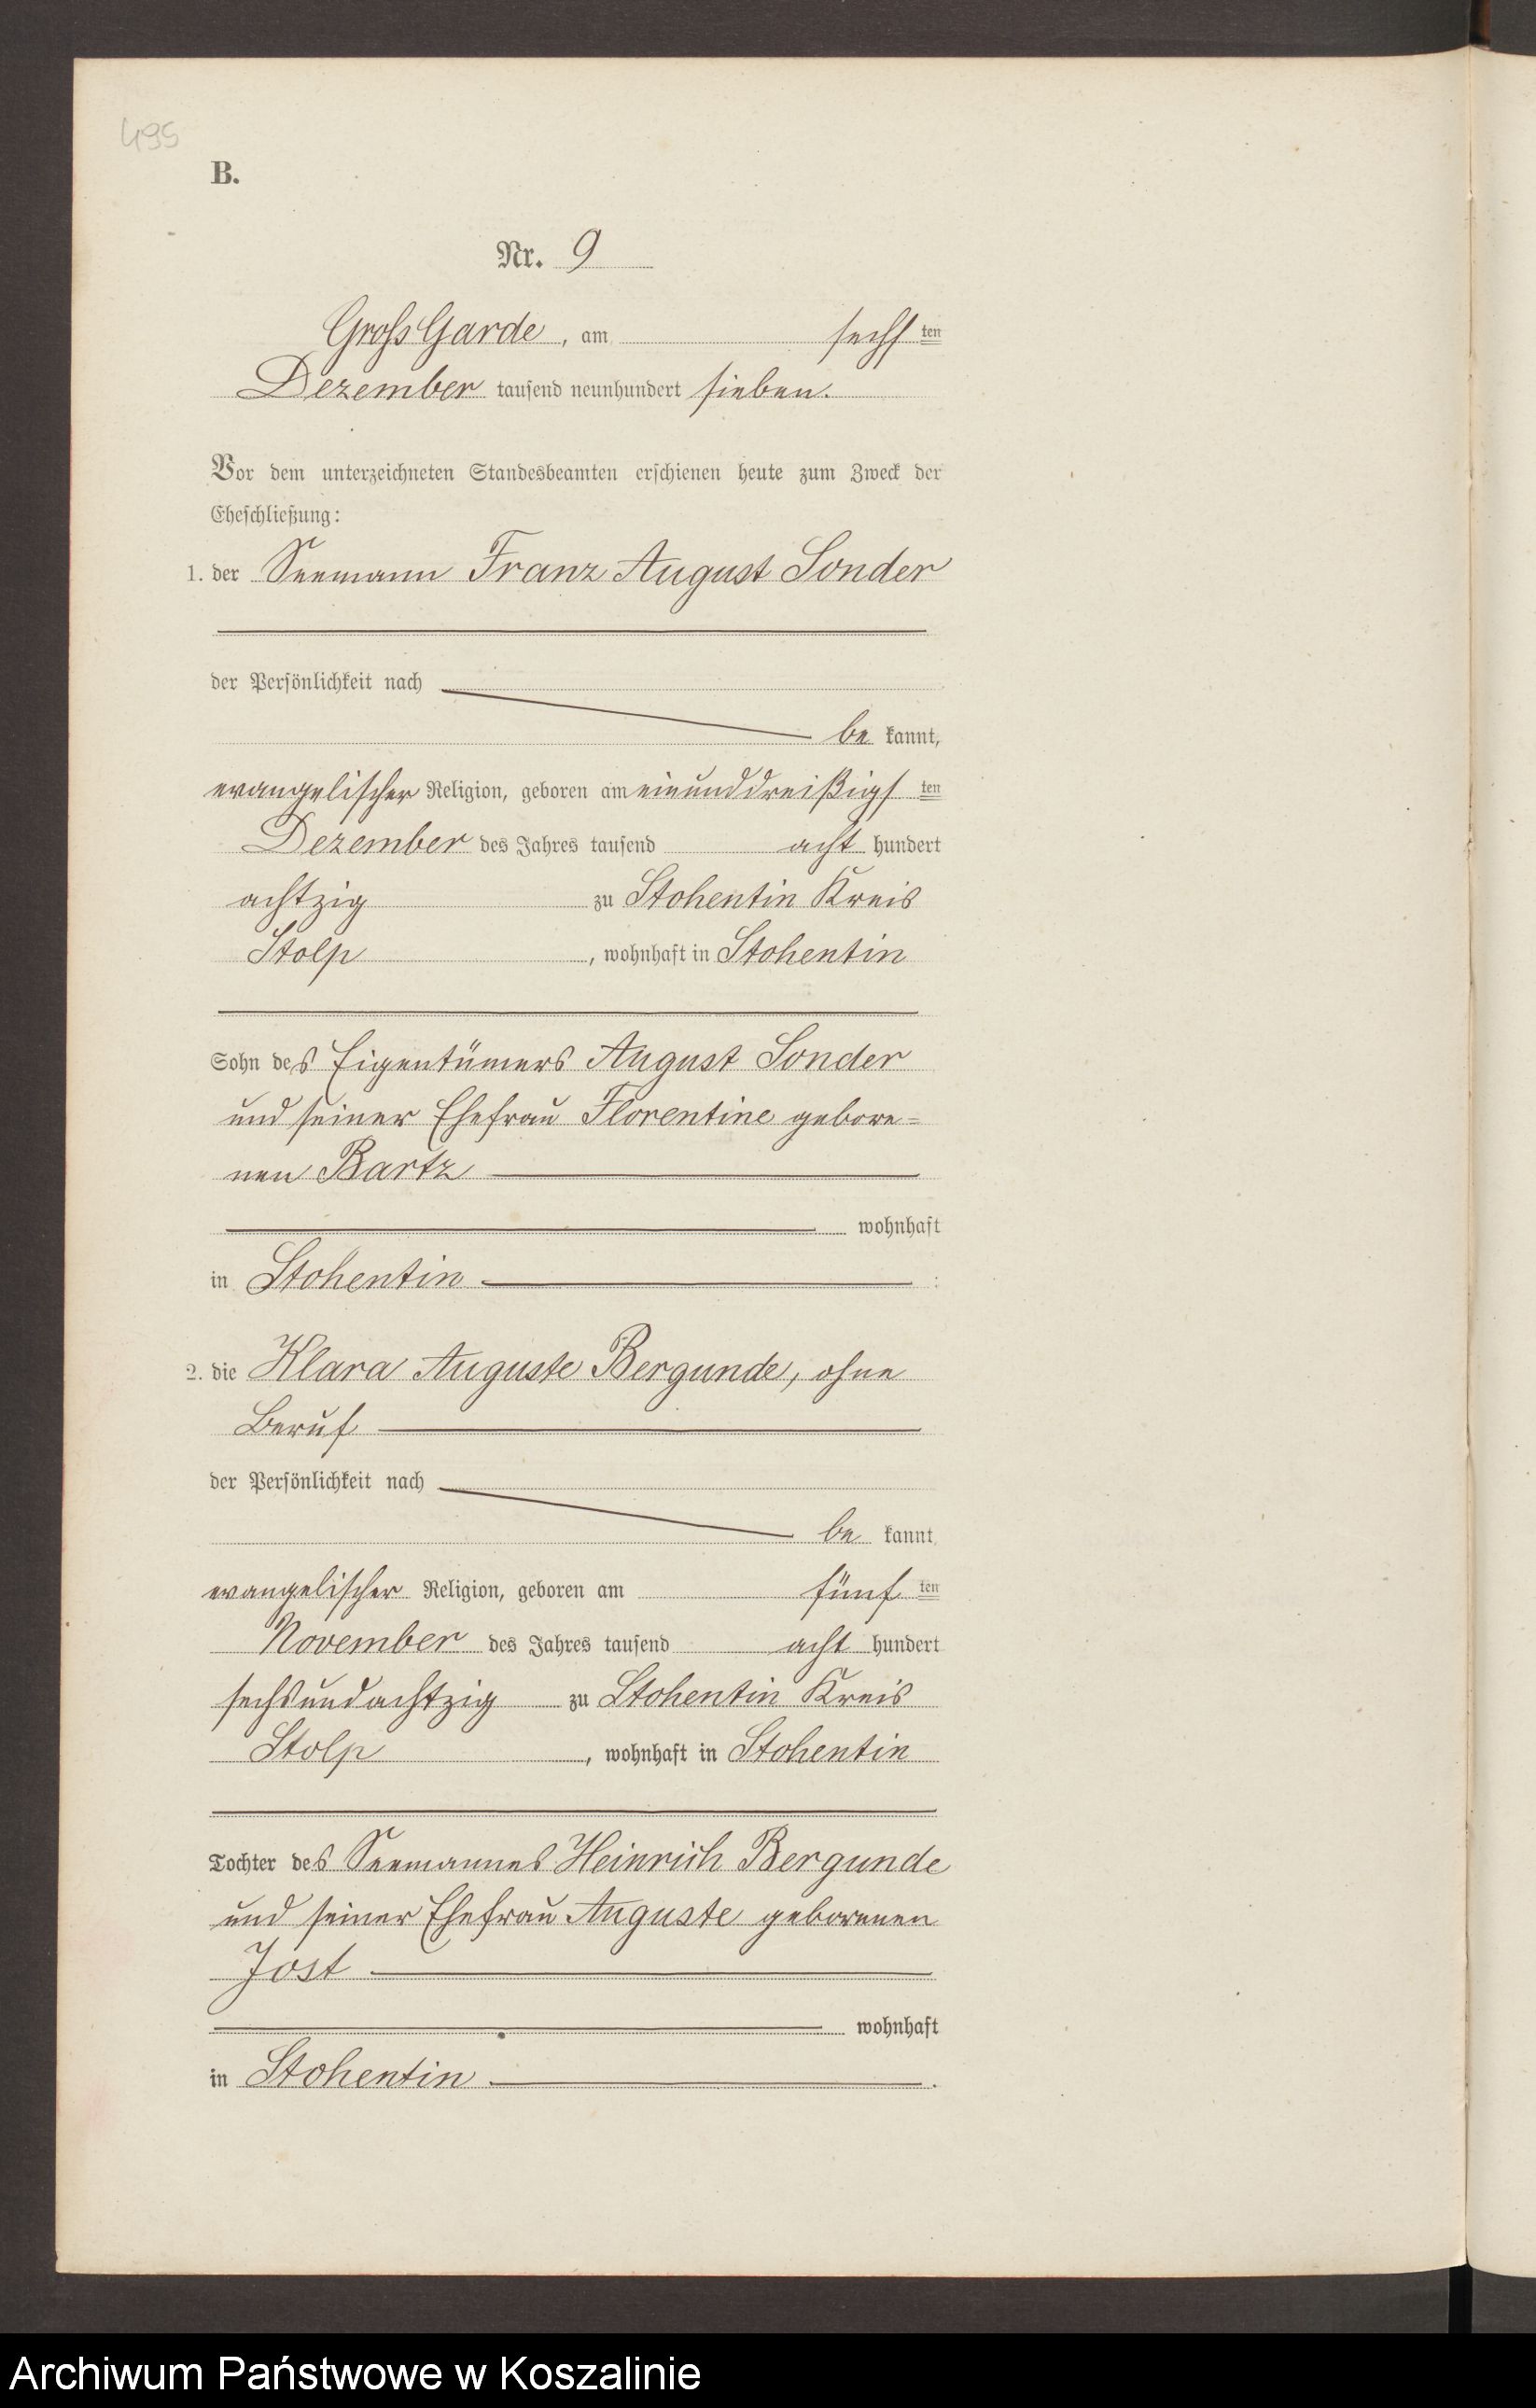 495
B.
Nr. 9
Gross Garde, am sechsten
Dezember tausend neunhundert sieben.
Vor dem unterzeichneten Standesbeamten erschienen heute zum Zweck der
Eheschließung:
1. der Seemann Franz August Sonder
der Persönlichkeit nach
be kannt,
evangelischer Religion, geboren am einunddreißigsten
Dezember des Jahres tausend acht hundert
achtzig zu Stohentin Kreis
Stolp, wohnhaft in Stohentin
Sohn des Eigentümers August Sonder
und seiner Ehefrau Florentine gebore=
nen Bartz
wohnhaft
in Stohentin :
2. die Klara Auguste Bergunde, ohne
Beruf
der Persönlichkeit nach
be kannt,
evangelischer Religion, geboren am fünften
November des Jahres tausend acht hundert
sechsundachtzig zu Stohentin Kreis
Stolp, wohnhaft in Stohentin
Tochter des Seemannes Heinrich Bergunde
und seiner Ehefrau Auguste geborenen
Jost
wohnhaft
in Stohentin.
Archiwum Państwowe w Koszalinie